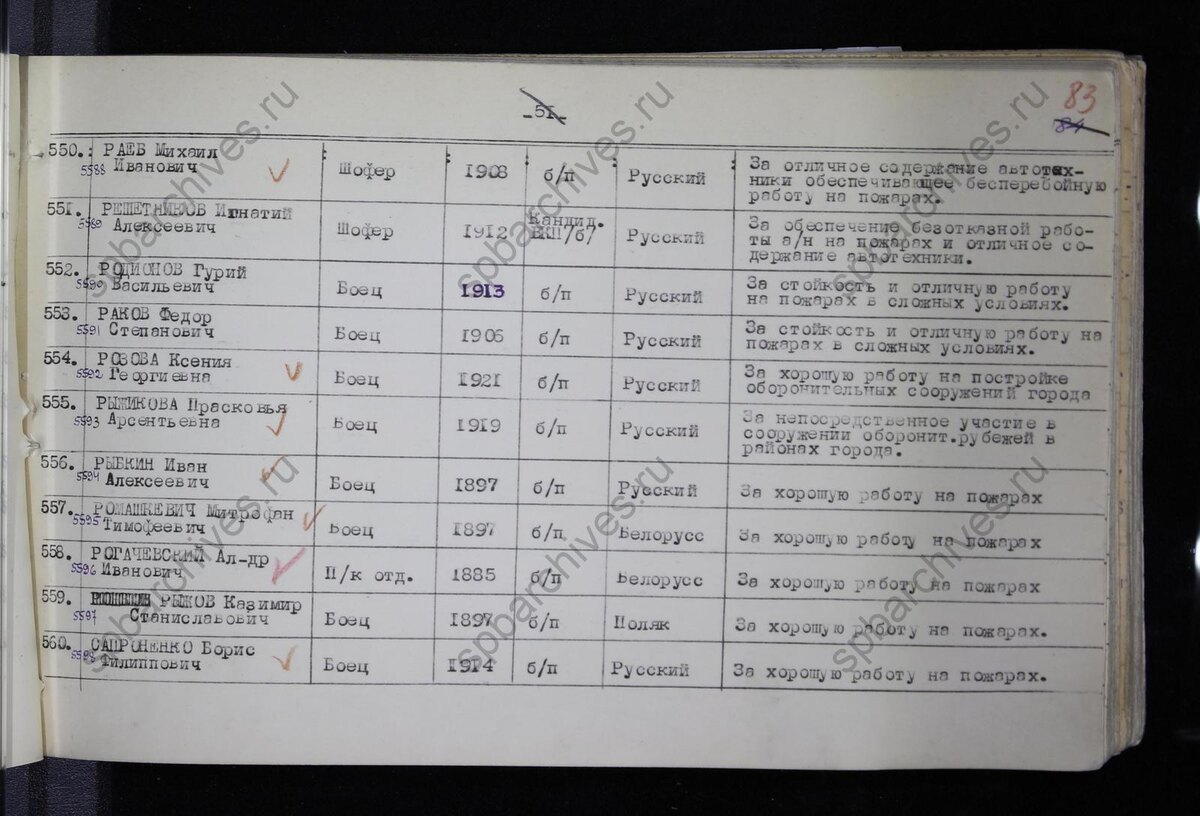 -51-
83
84
550. РАЕВ Михаил
5588 Иванович
Шофер
1908
б/п
Русский
За отличное содержание автотех-
ники обеспечивающее бесперебойную
работу на пожарах.
551. РЕШЕТНИКОВ Игнатий
5589 Алексеевич
Шофер
1912
Кандид.
ВКП/б/
Русский
За обеспечение безотказной рабо-
ты а/н на пожарах и отличное со-
держание автотехники.
552. РОДИОНОВ Гурий
5590 Васильевич
Боец
1913
б/п
Русский
За стойкость и отличную работу
на пожарах в сложных условиях.
553. РАКОВ Федор
5591 Степанович
Боец
1906
б/п
Русский
За стойкость и отличную работу на
пожарах в сложных условиях.
554. РОЗОВА Ксения
5592 Георгиевна
Боец
1921
б/п
Русский
За хорошую работу на постройке
оборонительных сооружений города
555. РЫЖИКОВА Прасковья
5593 Арсентьевна
Боец
1919
б/п
Русский
За непосредственное участие в
сооружении оборонит.рубежей в
районах города.
556. РЫБКИН Иван
5594 Алексеевич
Боец
1897
б/п
Русский
За хорошую работу на пожарах
557. РОМАШКЕВИЧ Митрофан
5595 Тимофеевич
Боец
1897
б/п
Белорусс
За хорошую работу на пожарах
558. РОГАЧЕВСКИЙ Ал-др
5596 Иванович
П/к отд.
1885
б/п
Белорусс
За хорошую работу на пожарах
559. РЫЖОВ Казимир
5597 Станиславович
Боец
1897
б/п
Поляк
За хорошую работу на пожарах.
560. САПРОНЕНКО Борис
5598 Филиппович
Боец
1914
б/п
Русский
За хорошую работу на пожарах.
spbarchives.ru
spbarchives.ru
spbarchives.ru
spbarchives.ru
spbarchives.ru
spbarchives.ru